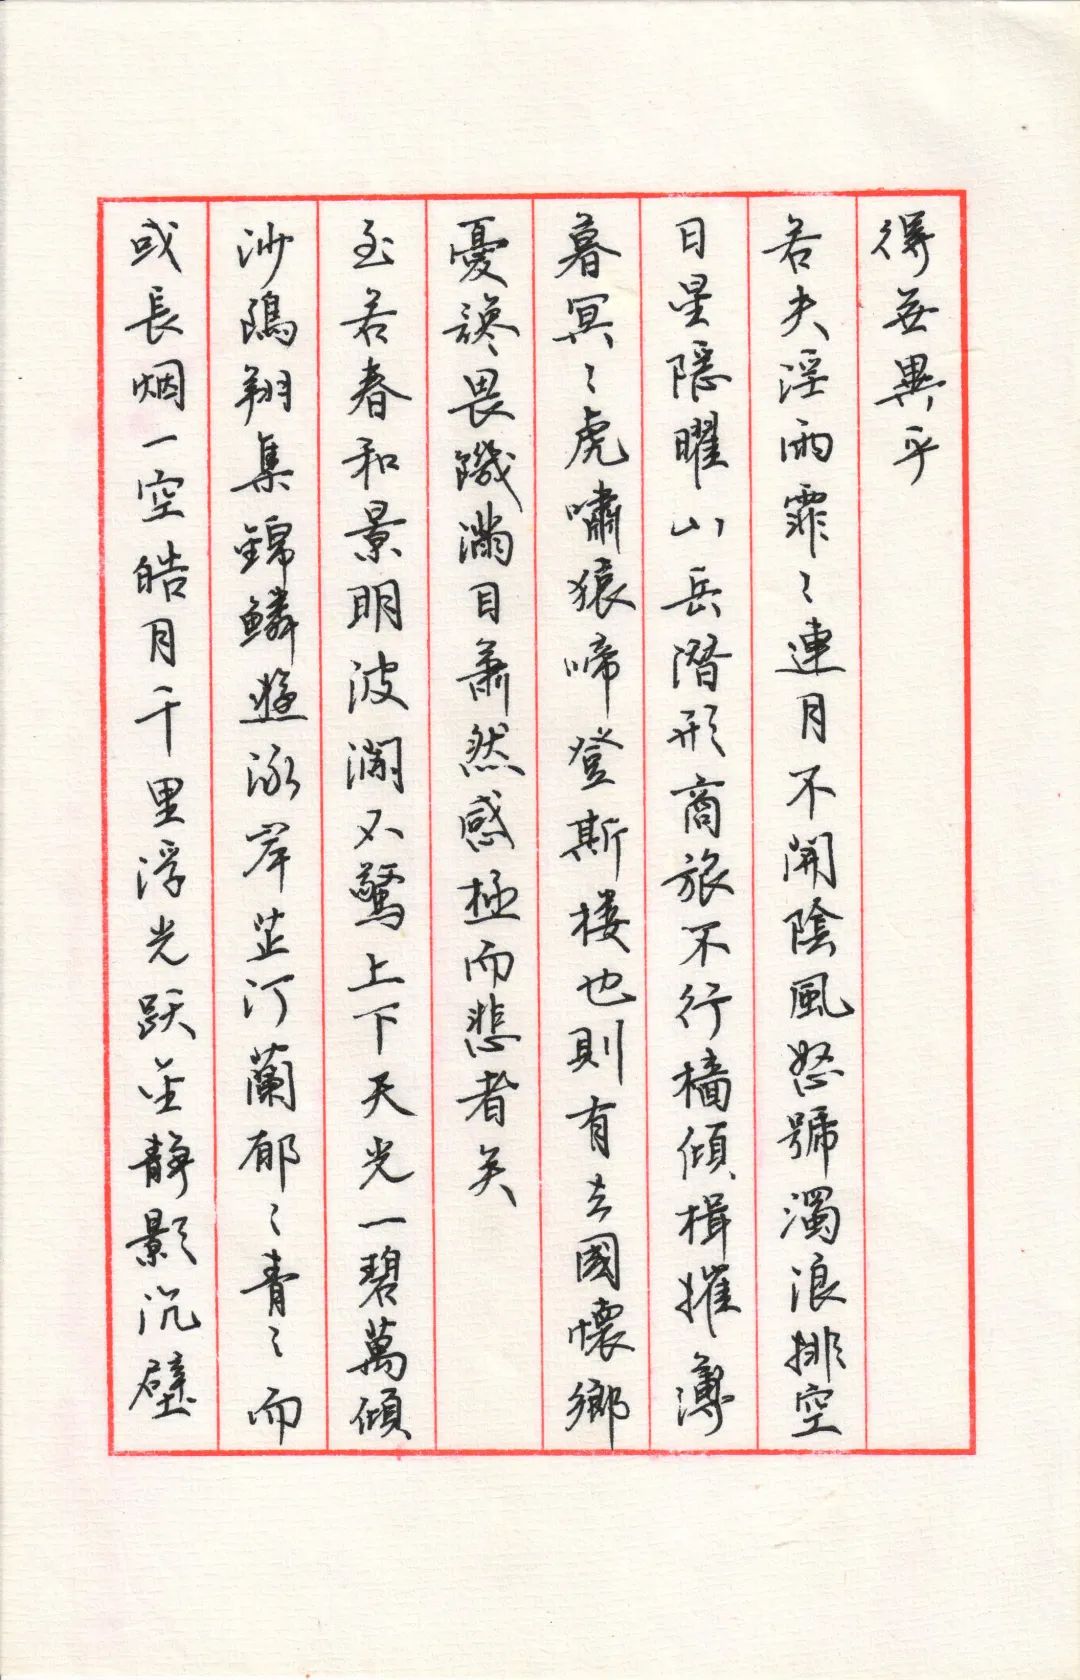 得無異乎
若夫淫雨霏〻連月不開陰風怒號濁浪排空
日星隱曜山岳潛形商旅不行檣傾楫摧薄
暮冥〻虎嘯猿啼登斯楼也則有去國懷鄉
憂讒畏譏滿目蕭然感極而悲者矣
至若春和景明波瀾不驚上下天光一碧萬傾
沙鷗翔集錦鱗遊泳岸芷汀蘭郁〻青〻而
或長烟一空皓月千里浮光跃金静影沉璧